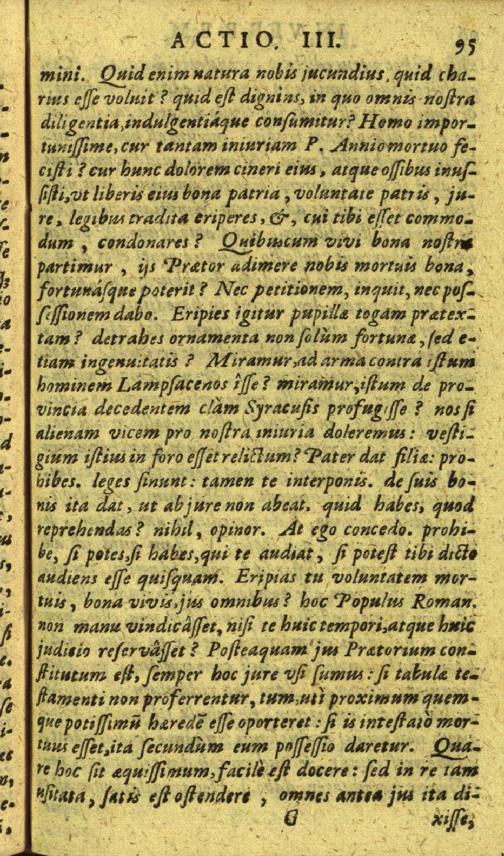 ACTIO. III. 95
mini. Quid enim natura nobis jucundius, quid cha-
rius esse voluit? quid est dignius, in quo omnis nostra
diligentia, indulgentiáque consumitur? Homo impor-
tunissime, cur tantam iniuriam P. Annio mortuo fe-
cisti? cur hunc dolorem cineri eius, atque ossibus inus-
sisti, vt liberis eius bona patria, voluntate patris, ju-
re, legibus tradita eriperes, &, cui tibi esset commo-
dum, condonares? Quibuscum vivi bona nostra
partimur, ijs Prætor adimere nobis mortuis bona,
fortunásque poterit? Nec petitionem, inquit, nec pos-
sessionem dabo. Eripies igitur pupillæ togam prætex-
tam? detrahes ornamenta non solùm fortunæ, sed e-
tiam ingenuitatis? Miramur, ad arma contra istum
hominem Lampsacenos îsse? miramur, istum de pro-
vincia decedentem clàm Syracusis profugisse? nos si
alienam vicem pro nostra iniuria doleremus: vesti-
gium istius in foro esset relictum? Pater dat filiæ: pro-
hibes. leges sinunt: tamen te interponis. de suis bo-
nis ita dat, ut ab jure non abeat. quid habes, quod
reprehendas? nihil, opinor. At ego concedo. prohi-
be, si potes, si habes, qui te audiat, si potest tibi dicto
audiens esse quisquam. Eripias tu voluntatem mor-
tuis, bona vivis, jus omnibus? hoc Populus Roman.
non manu vindicâsset, nisi te huic tempori, atque huic
judicio reservâsset? Posteaquam jus Prætorium con-
stitutum est, semper hoc jure vsi sumus: si tabulæ te-
stamenti non proferrentur, tum, uti proximum quem-
que potissimũ hæredẽ esse oporteret: si is intestato mor-
tuus esset, ita secundùm eum possessio daretur. Qua-
re hoc sit æquissimum, facile est docere: sed in re tam
usitata, satis est ostendere, omnes antea jus ita di-
G xisse,